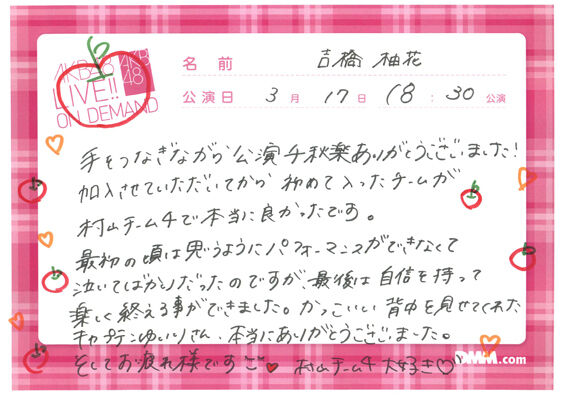 AKB48
LIVE!!
ON DEMAND
AKB
48
名前 吉橋 柚花
公演日 3月17日 18:30公演
手をつなぎながら公演千秋楽ありがとうございました!
加入させていただいてから 初めて入ったチームが
村山チーム4で本当に良かったです。
最初の頃は思うようにパフォーマンスができなくて
泣いてばかりだったのですが、最後は自信を持って
楽しく終える事ができました。かっこいい背中を見せてくれた
キャプテンゆいりさん、本当にありがとうございました。
そしてお疲れ様です 村山チーム4 大好き♡
DMM.com